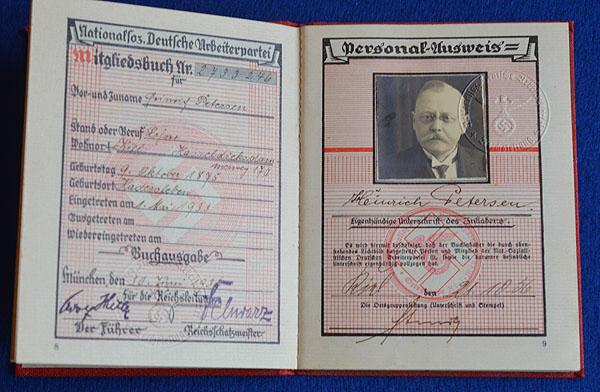 Nationalsoz. Deutsche Arbeiterpartei
Mitgliedsbuch Nr. 2733246
für
Vor- und Zuname Heinrich Petersen
Stand oder Beruf
Wohnort Kiel
Geburtstag 9. Oktober 1875
Geburtsort Hadersleben
Eingetreten am 1. Mai 1933
Ausgetreten am
Wiedereingetreten am
Buchausgabe
München, den
Für die Reichsleitung
Schwarz
Der Führer Reichsschatzmeister
8
Personal-Ausweis
Heinrich Petersen.
Eigenhändige Unterschrift des Inhabers.
Es wird hiermit bestätigt, daß der Buchinhaber die durch oben-
stehendes Lichtbild ausgewiesene Person und Mitglied der Nat.-Sozia-
listischen Deutschen Arbeiterpartei ist, sowie die darunter befindliche
Unterschrift eigenhändig vollzogen hat.
Kiel den
Die Ortsgruppenleitung (Unterschrift und Stempel)
9